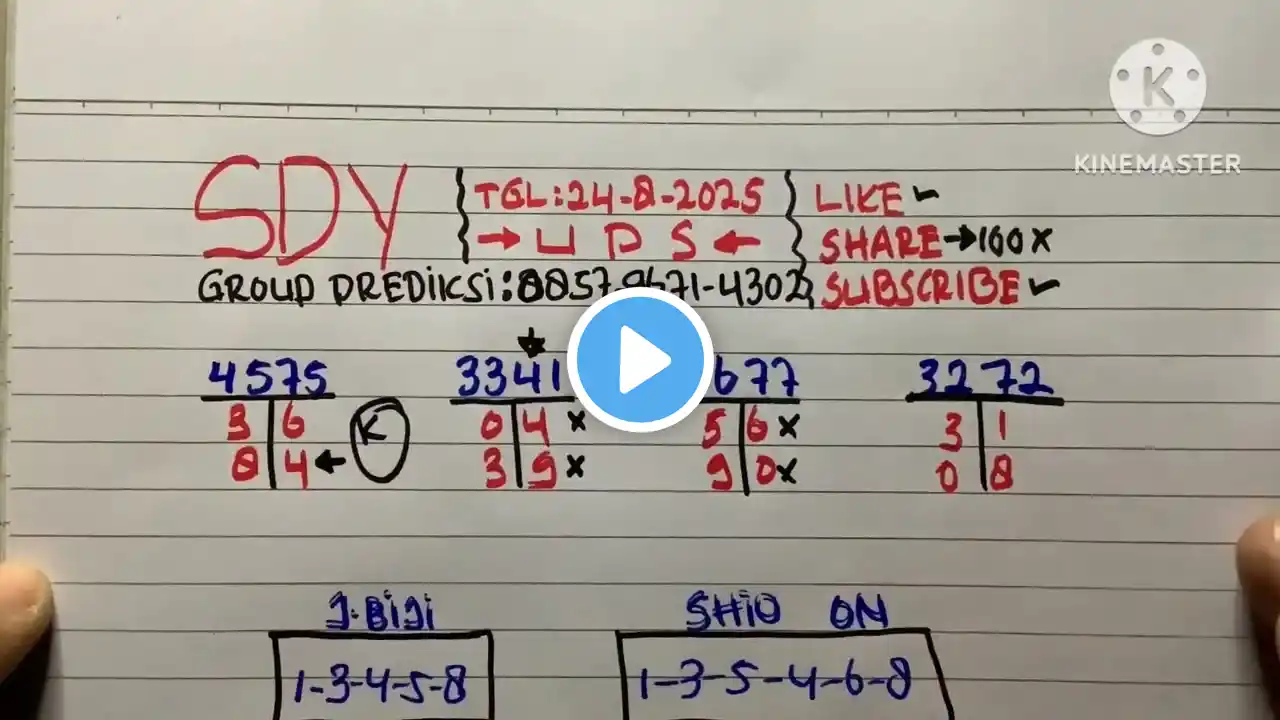 KINEMASTER
SDY
TGL:24-8-2025
→ U P S ←
LIKE ✓
SHARE→100X
SUBSCRIBE ✓
GROUP PREDIKSI:
4575
3 6
8 4 ← K
3341
0 4 x
3 9 x
677
5 6 x
9 0 x
3272
3 1
0 8
J.BIJI
1-3-4-5-8
SHIO ON
1-3-5-4-6-8